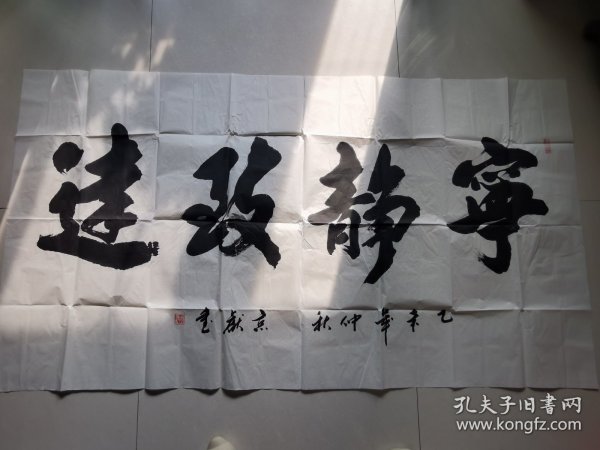 寧静致遠
己未年仲秋 京献书
孔夫子旧書网
www.kongfz.com